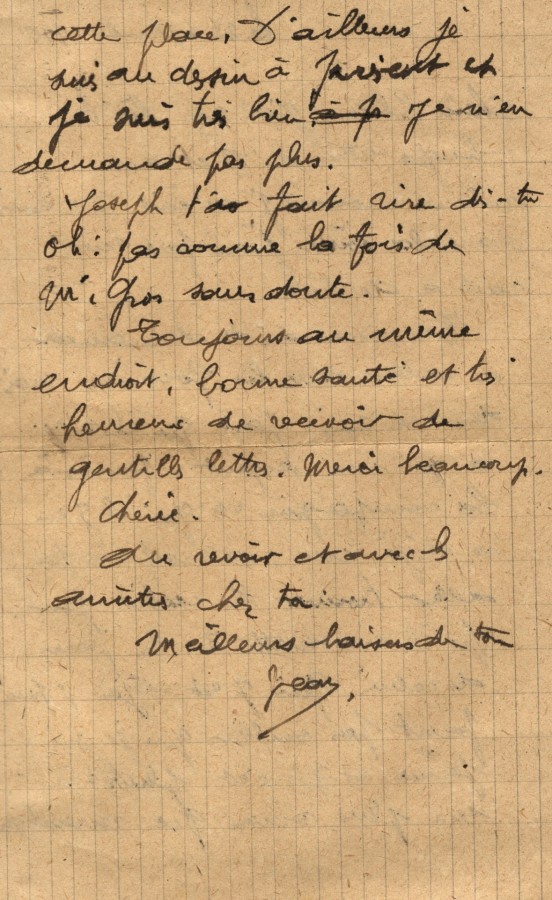 cette place. D'ailleurs je
suis au dessin à présent et
je suis très bien à p Je n'en
demande pas plus.
Joseph t'as fait rire dis-tu
oh! pas comme la fois de
Mr. Gros sans doute.
Toujours au même
endroit, bonne santé et très
heureux de recevoir de
gentills lettres. Merci beaucoup.
chérie.
Au revoir et avec
amitiés chez toi
Meilleurs baisers de ton
Jean,